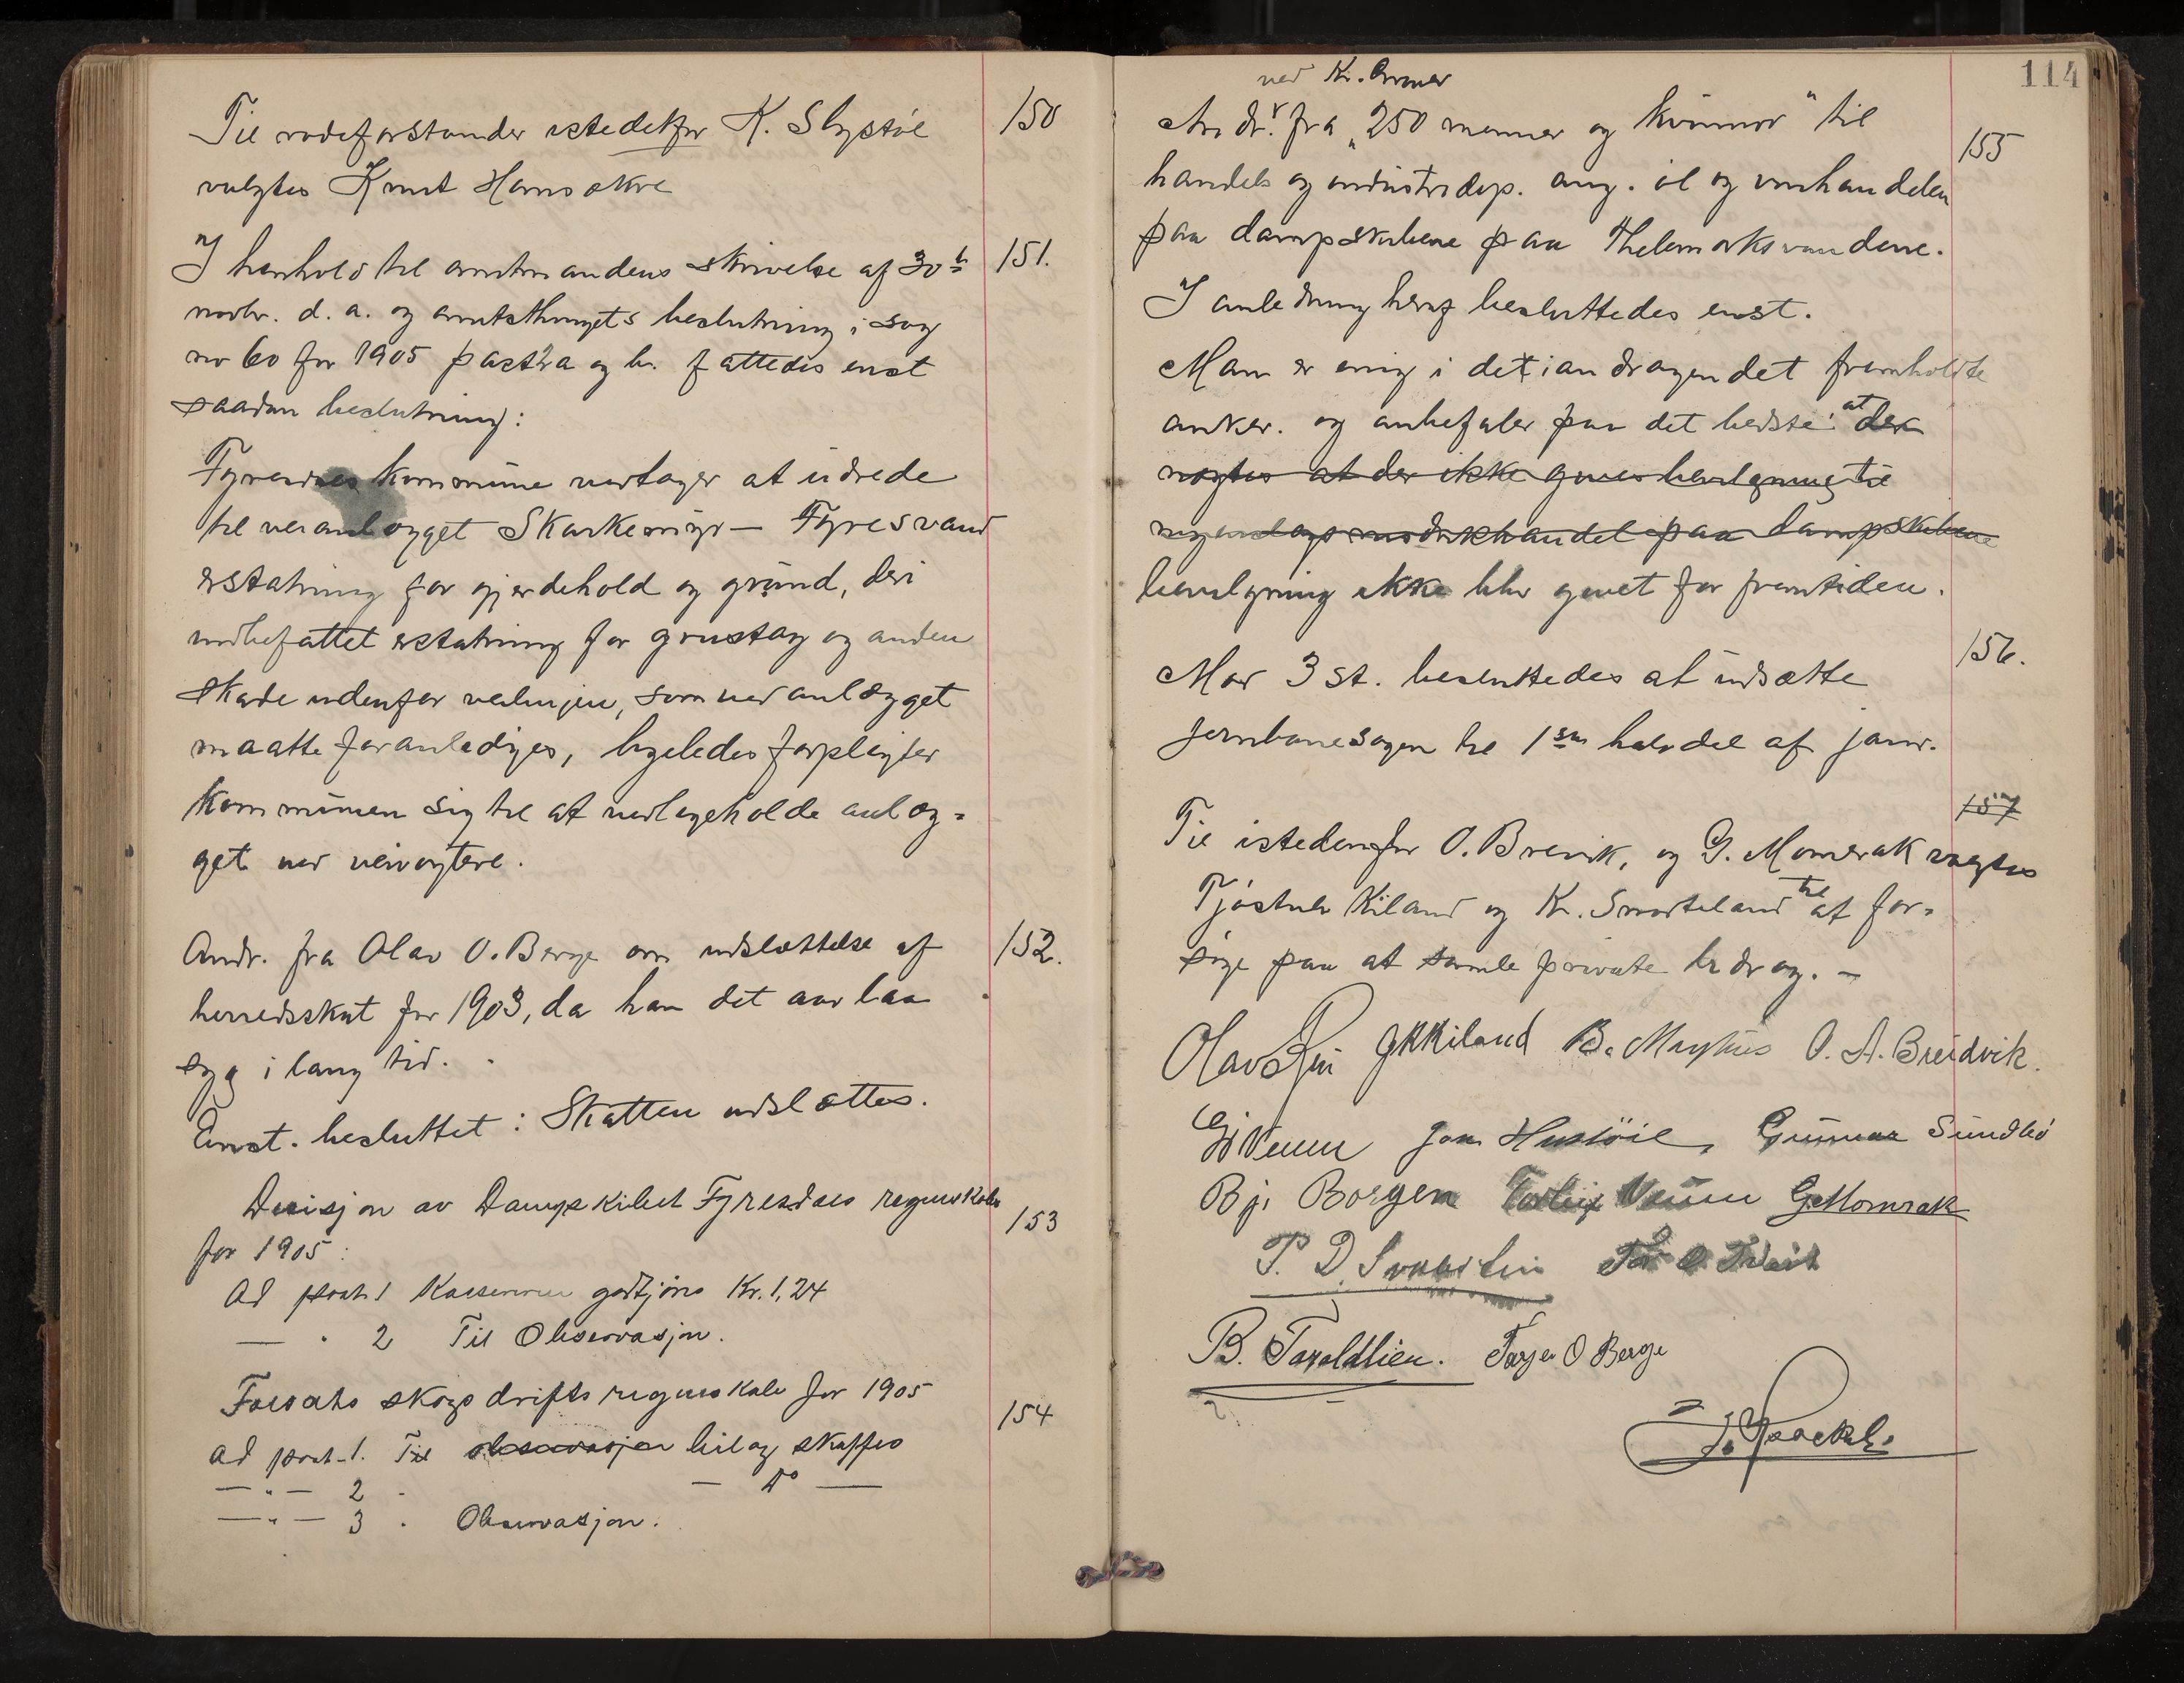 Til rodeforstander istedetfor K. Slystøl
150
valgtes Knut Homsakre
I henhold til amtmandens skrivelse af 30te
151.
novbr. d. a. og amtsthingets beslutning i sag
no 60 for 1905 post 2 a og b. fattedes enst
saadan beslutning:
Fyresdal kommune vedtager at udrede
til veianlægget Skarkemyr - Fyresvand
erstatning for gjerdehold og grund, deri
indbefattet erstatning for grustag og anden
skade udenfor veilinjen, som ved anlægget
maatte foranlediges, ligeledes forpligter
kommunen sig til at vedligeholde anlæg=
get ved veivogtere.
Andr. fra Olav O. Berge om udslættelse af
152.
herredsskat for 1903, da han det aar laa
syg i lang tid.
Enst. besluttet: Skatten udslættes.
Desisjon av Dampskibet Fyresdals regnskab
153
for 1905:
Ad post 1 Kassereren godtjøres Kr. 1,24
— " 2 Til Observasjon.
skogsdrifts regnskab for 1905
154
Ad post 1. Til observasjon bilag skaffes
— " — 2 — do —
— " — 3 . Observasjon.
114
ved Kr.
Andr. fra "250 menner og kvinnor" til
155
handels og industridep. ang. øl og vinhandelen
paa dampskibene paa Thelemarksvandene.
I anledning heraf besluttedes enst.
Man er enig i det i andragendet fremholdte
anker. og anbefaler paa det bedste: at der
nægtes at der ikke gives bevilgning til
paa dampskibene
bevilgning ikke blir givet for fremtiden.
156.
Mod 3 st. besluttedes at udsætte
jernbanesagen til 1ste halvdel af janr.
157
Til istedenfor O. Breivik, og G. Momrak valgtes
Tjøstuly Kiland og Kr. Smorteland til at for=
søge paa at samle private bidrag. —
GKKiland B. O. A. Breidvik.
G Veum Jon Hustöil, Gunnar Sundbö
Bj. Borgen Veum G Momrak
P. D. Svaastin
B. Taraldlien. Targei O Berge